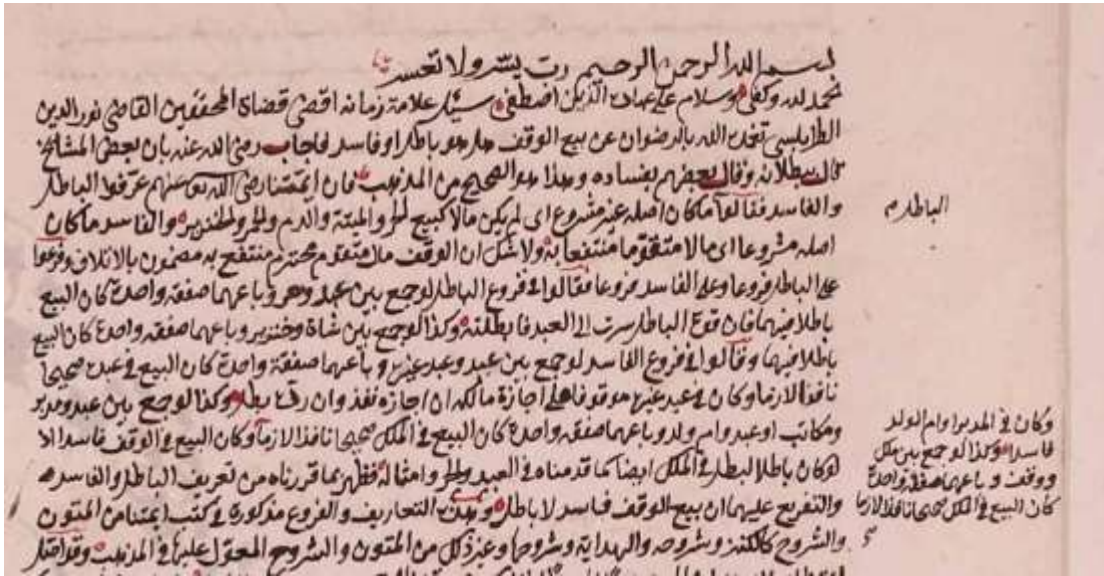 بسم الله الرحمن الرحيم رب يسر ولا تعسر
نحمد لله وكفى وسلام على عباده الذين اصطفى سئل علامة زمانه اقضى قضاة المحققين القاضي نور الدين
الطرابلسي تغمده الله بالرضوان عن بيع الوقف هل هو باطل او فاسد فاجاب رضي الله عنه بان بعض المشائخ
قال ببطلانه وقال بعضهم بفساده وهذا هو الصحيح من المذهب فان ايمتنا رضي الله تع عنهم عرفوا الباطل
والفاسد فقالوا ما كان اصله غير مشروع اى لم يكن مالا كبيع الحر والميتة والدم والحر والخنزير والفاسد ما كان
اصله مشروعا اى مالا متقوما منتفعا به ولا شك ان الوقف مال متقوم محترم منتفع به مضمون بالاتلاف وفرعوا
على الباطل فروعا وعلى الفاسد فروعا فقالوا فى فروع الباطل لو جمع بين عبد وحر وباعهما صفقة واحدة كان البيع
باطلا فيهما فان قوة الباطل سرت الى العبد فابطلته وكذا لو جمع بين شاة وخنزير وباعهما صفقه واحدة كان البيع
باطلا فيهما وقالوا فى فروع الفاسد لو جمع بين عبد وعبد غيره وباعهما صفقة واحدة كان البيع فى عبده صحيحا
نافذا لازما وكان فى عبد غيره موقوفا على اجازة مالكه ان اجازه نفذ وان رده بطل وكذا لو جمع بين عبد ومدبر
ومكاتب او عبد وام ولد وباعهما صفقه واحدة كان البيع فى الملك صحيحا نافذا لازما وكان البيع فى الوقف فاسدا اذ
لو كان باطلا لبطل فى الملك ايضا كما قدمناه فى العبد والحر وامثاله فظهر بما قررناه من تعريف الباطل والفاسد
والتفريع عليهما ان بيع الوقف فاسد لا باطل وهذه التعاريف والفروع مذكورة فى كتب ايمتنا من المتون
والشروح كالكنز وشروحه والهداية وشروحها وغير ذلك من المتون والشروح المعول عليها فى المذهب
الباطل م
وكان فى المدبر او ام الولد
فاسدا وكذا لو جمع بين ملك
ووقف وباعهما صفقة واحدة
كان البيع فى الملك صحيحا نافذا لازما